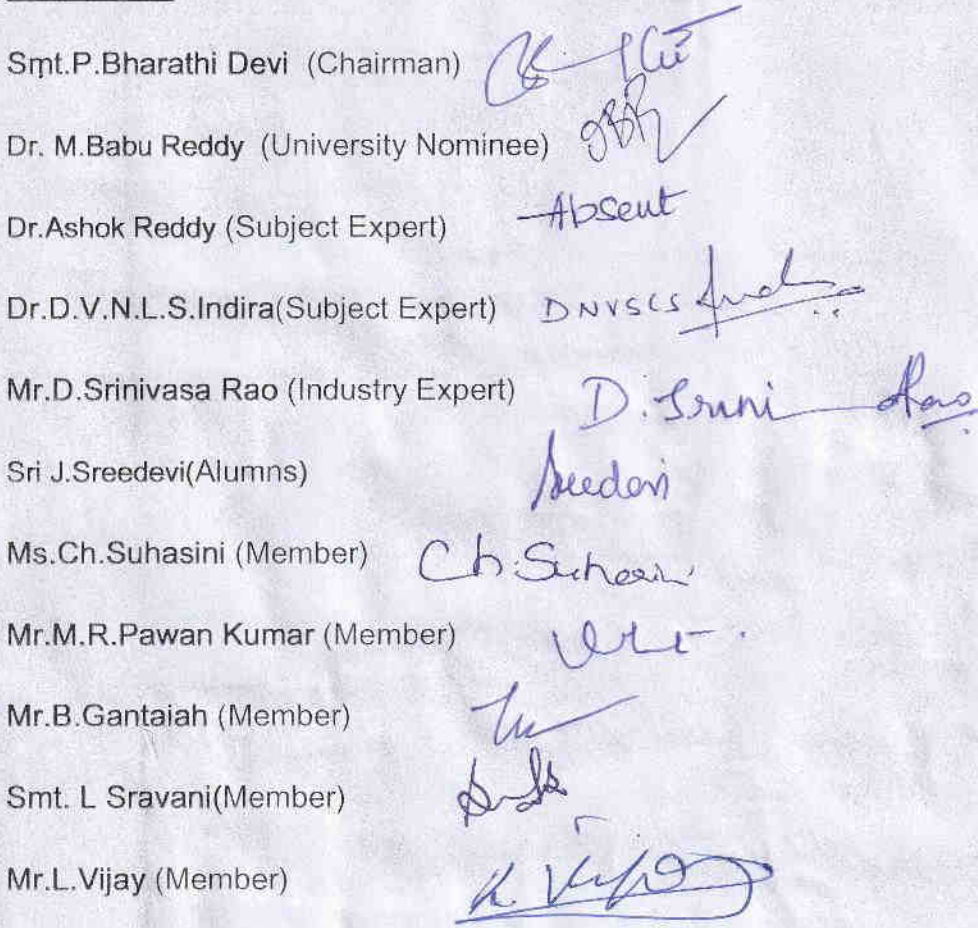 Smt.P.Bharathi Devi (Chairman)
Dr. M.Babu Reddy (University Nominee)
Dr.Ashok Reddy (Subject Expert) Absent
Dr.D.V.N.L.S.Indira(Subject Expert) DNVSLS
Mr.D.Srinivasa Rao (Industry Expert) D. Srini Rao
Sri J.Sreedevi(Alumns) Sreedevi
Ms.Ch.Suhasini (Member) Ch.Suhasini
Mr.M.R.Pawan Kumar (Member)
Mr.B.Gantaiah (Member)
Smt. L Sravani(Member)
Mr.L.Vijay (Member)